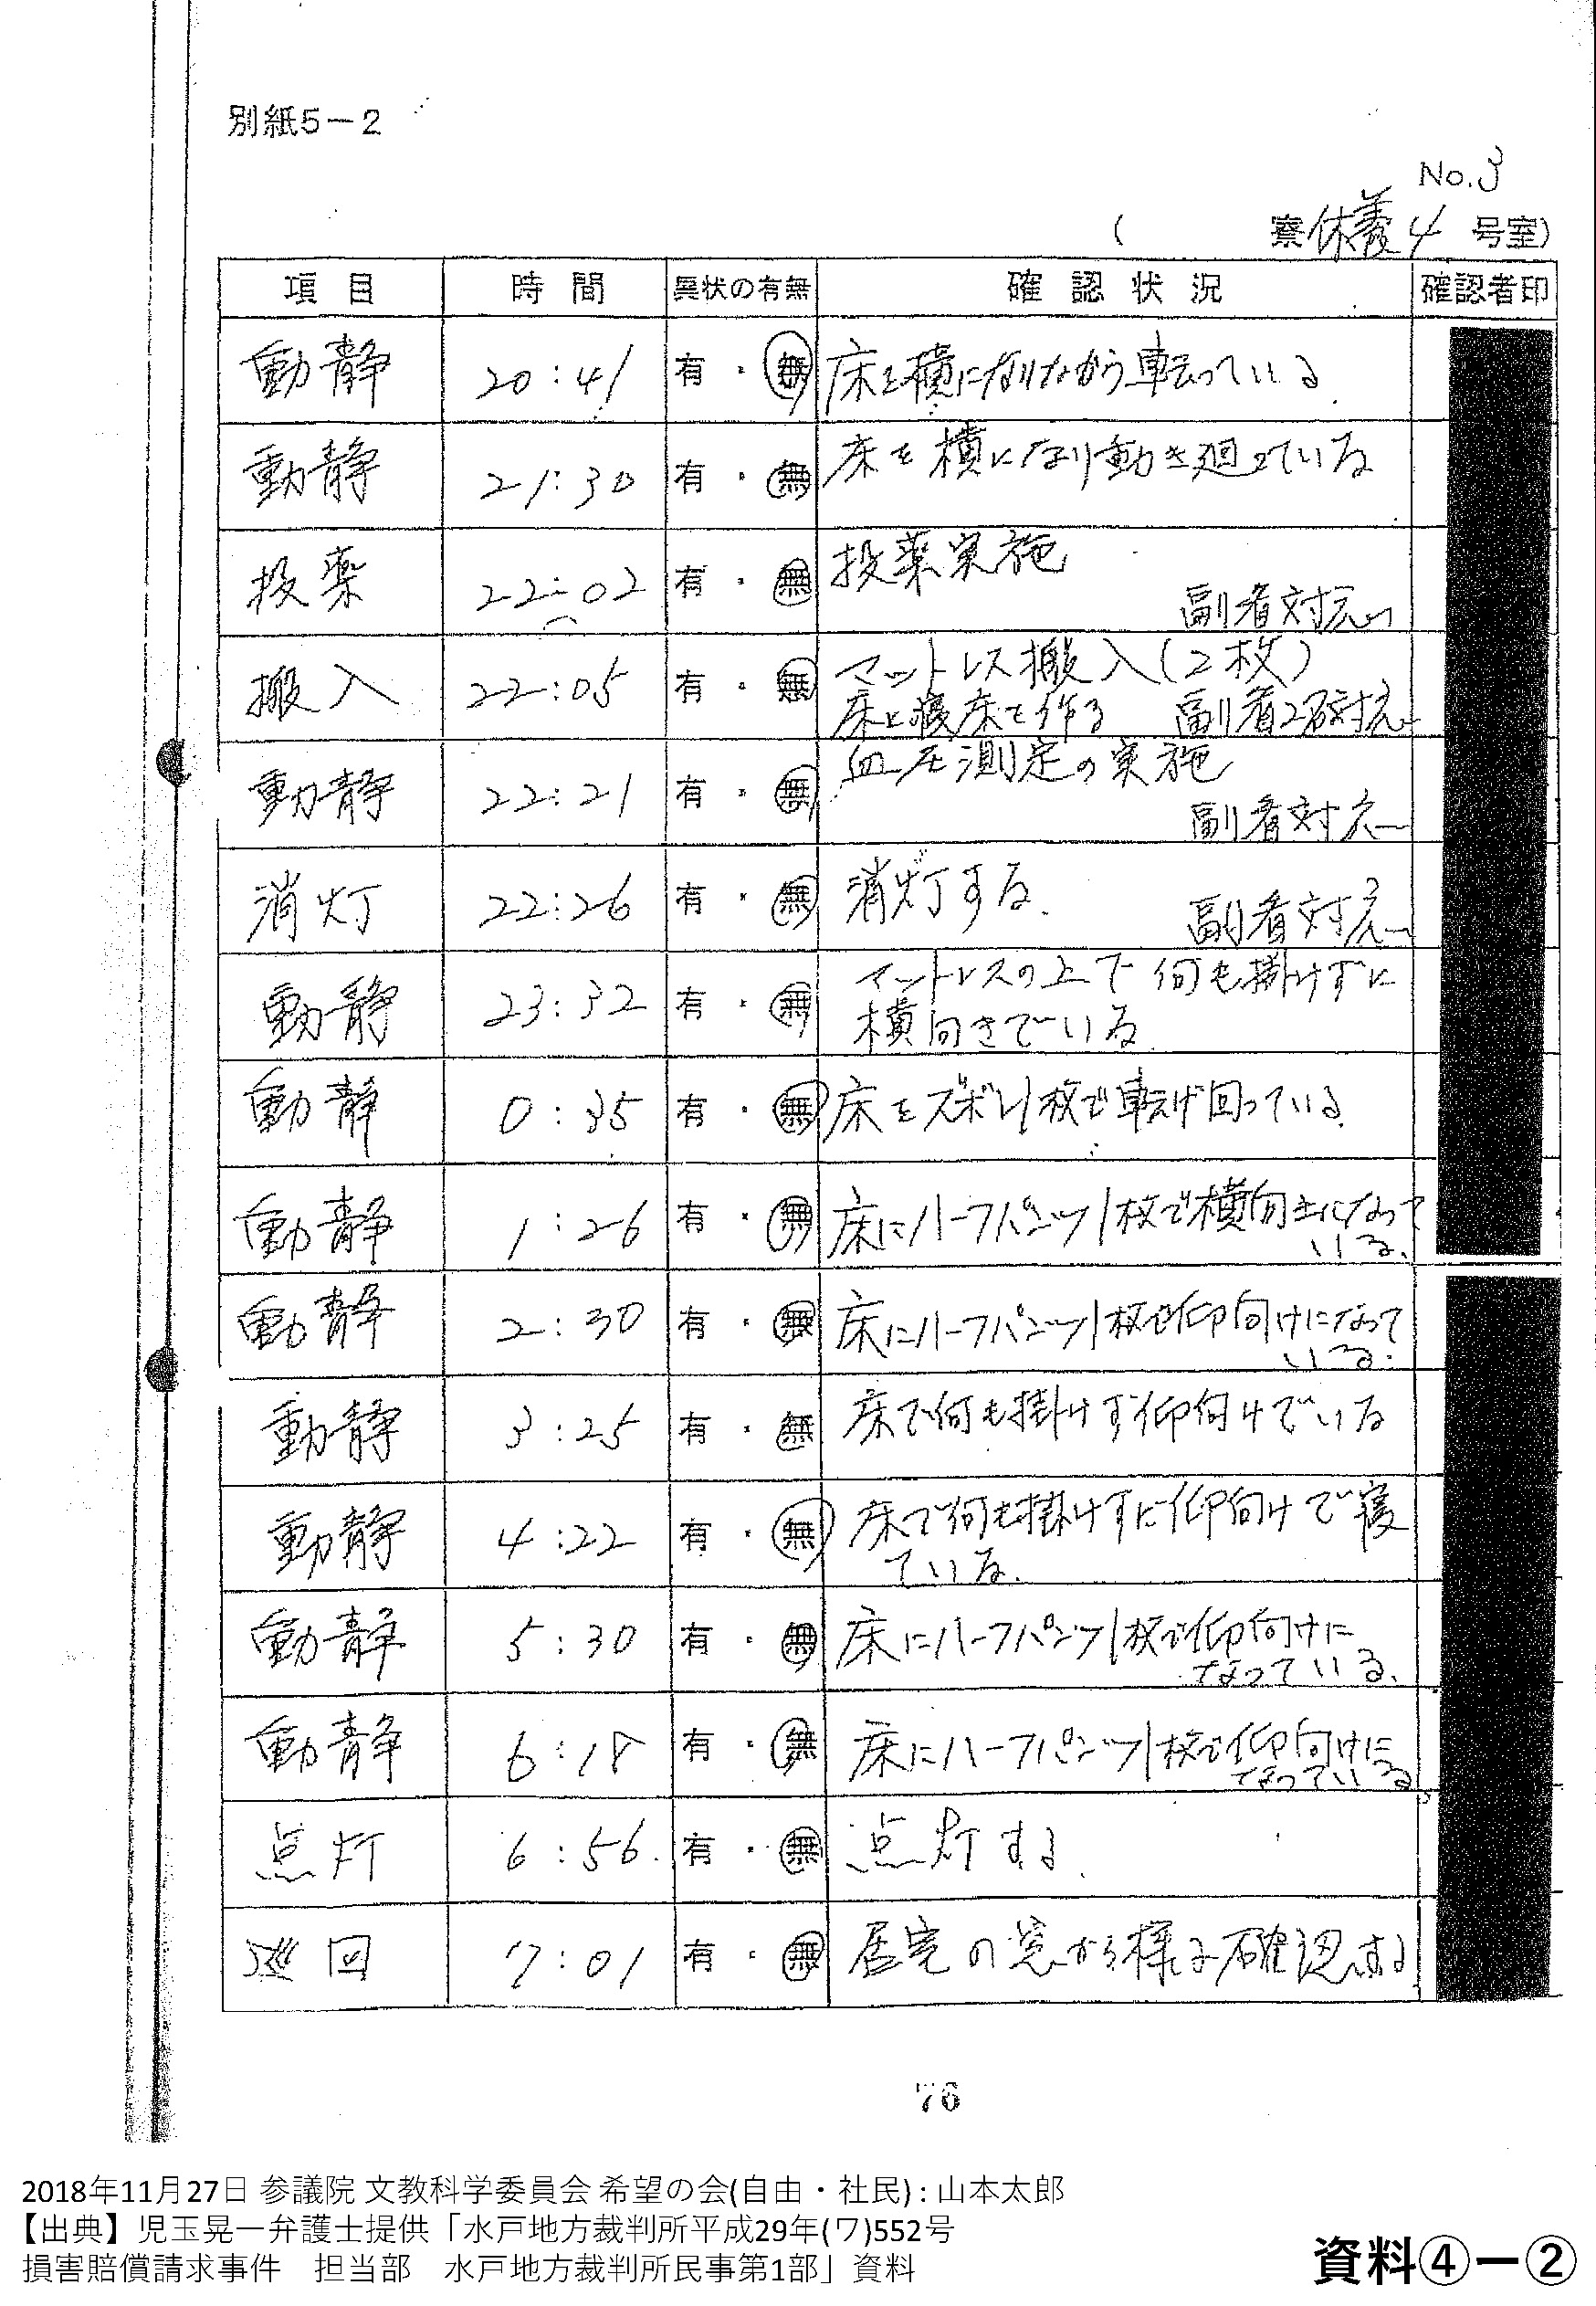 別紙5-2
No.3
( 寮休養4号室)
項目 時間 異状の有無 確認状況 確認者印
動静 20:41 有・無 床を横になりながら転っている
動静 21:30 有・無 床を横になり動き廻っている
投薬 22:02 有・無 投薬実施
副看対応
搬入 22:05 有・無 マットレス搬入(2枚)
床に寝床を作る 副看2名対応
動静 22:21 有・無 血圧測定の実施
副看対応
消灯 22:26 有・無 消灯する.
副看対応
動静 23:32 有・無 マットレスの上で何も掛けずに
横向きでいる.
動静 0:35 有・無 床をズボン1枚で転げ回っている.
動静 1:26 有・無 床にハーフパンツ1枚で横向きになって
いる.
動静 2:30 有・無 床にハーフパンツ1枚で仰向けになって
いる.
動静 3:25 有・無 床で何も掛けず仰向けでいる
動静 4:22 有・無 床で何も掛けずに仰向けで寝
ている.
動静 5:30 有・無 床にハーフパンツ1枚で仰向けに
なっている.
動静 6:18 有・無 床にハーフパンツ1枚で仰向けに
なっている
点灯 6:56 有・無 点灯する.
巡回 7:01 有・無 居室の窓から様子確認する
76
2018年11月27日 参議院 文教科学委員会 希望の会(自由・社民) : 山本太郎
【出典】児玉晃一弁護士提供「水戸地方裁判所平成29年(ワ)552号
損害賠償請求事件 担当部 水戸地方裁判所民事第1部」資料
資料④ー②